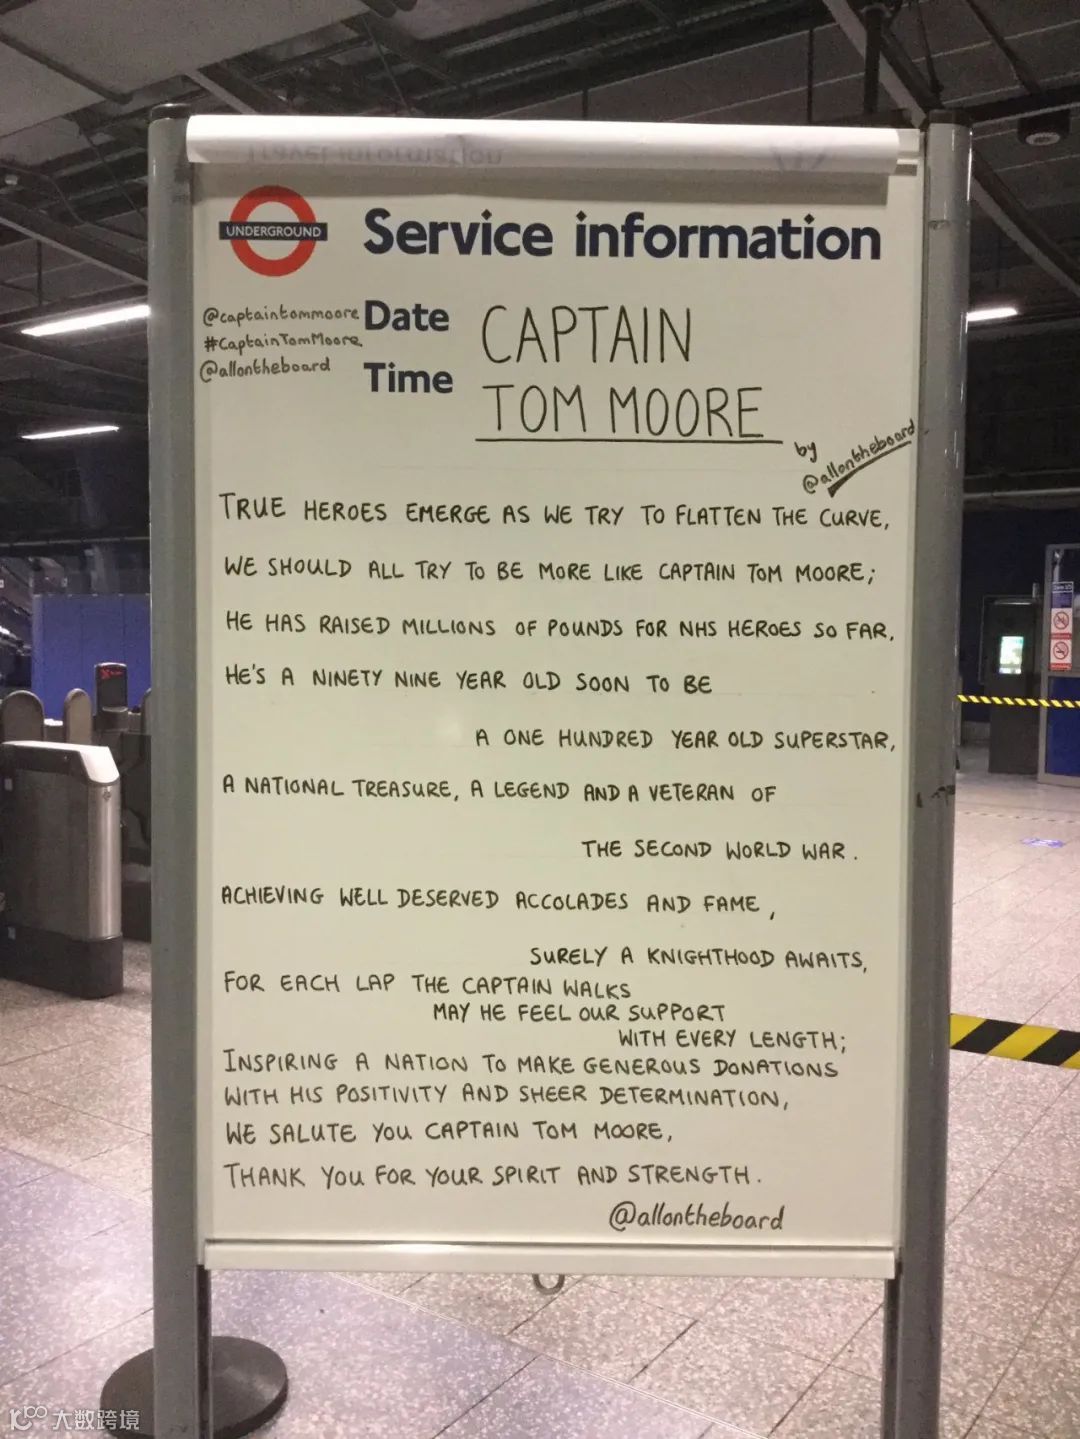 Travel information
UNDERGROUND
Service information
@captaintommoore
#CaptainTomMoore
@allontheboard
Date
Time
CAPTAIN
TOM MOORE
by
@allontheboard
TRUE HEROES EMERGE AS WE TRY TO FLATTEN THE CURVE,
WE SHOULD ALL TRY TO BE MORE LIKE CAPTAIN TOM MOORE;
HE HAS RAISED MILLIONS OF POUNDS FOR NHS HEROES SO FAR,
HE'S A NINETY NINE YEAR OLD SOON TO BE
A ONE HUNDRED YEAR OLD SUPERSTAR,
A NATIONAL TREASURE, A LEGEND AND A VETERAN OF
THE SECOND WORLD WAR.
ACHIEVING WELL DESERVED ACCOLADES AND FAME,
SURELY A KNIGHTHOOD AWAITS,
FOR EACH LAP THE CAPTAIN WALKS
MAY HE FEEL OUR SUPPORT
WITH EVERY LENGTH;
INSPIRING A NATION TO MAKE GENEROUS DONATIONS
WITH HIS POSITIVITY AND SHEER DETERMINATION,
WE SALUTE YOU CAPTAIN TOM MOORE,
THANK YOU FOR YOUR SPIRIT AND STRENGTH.
@allontheboard
大数跨境